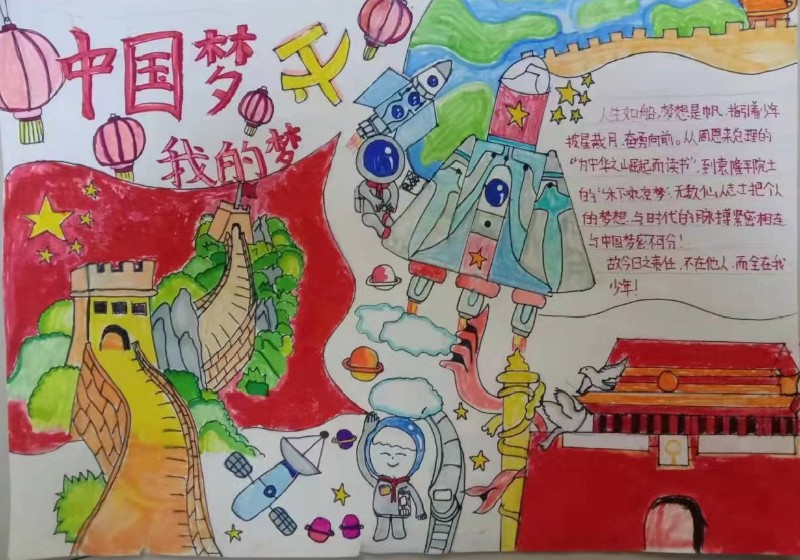 中国梦
我的梦
人生如船,梦想是帆,指引着少年
披星戴月,奋勇向前。从周恩来总理的
“为中华之崛起而读书”,到袁隆平院士
的“禾下乘凉梦”,无数仁人志士把个人
的梦想,与时代的脉搏紧密相连
与中国梦密不可分!
故今日之责任,不在他人,而全在我
少年!